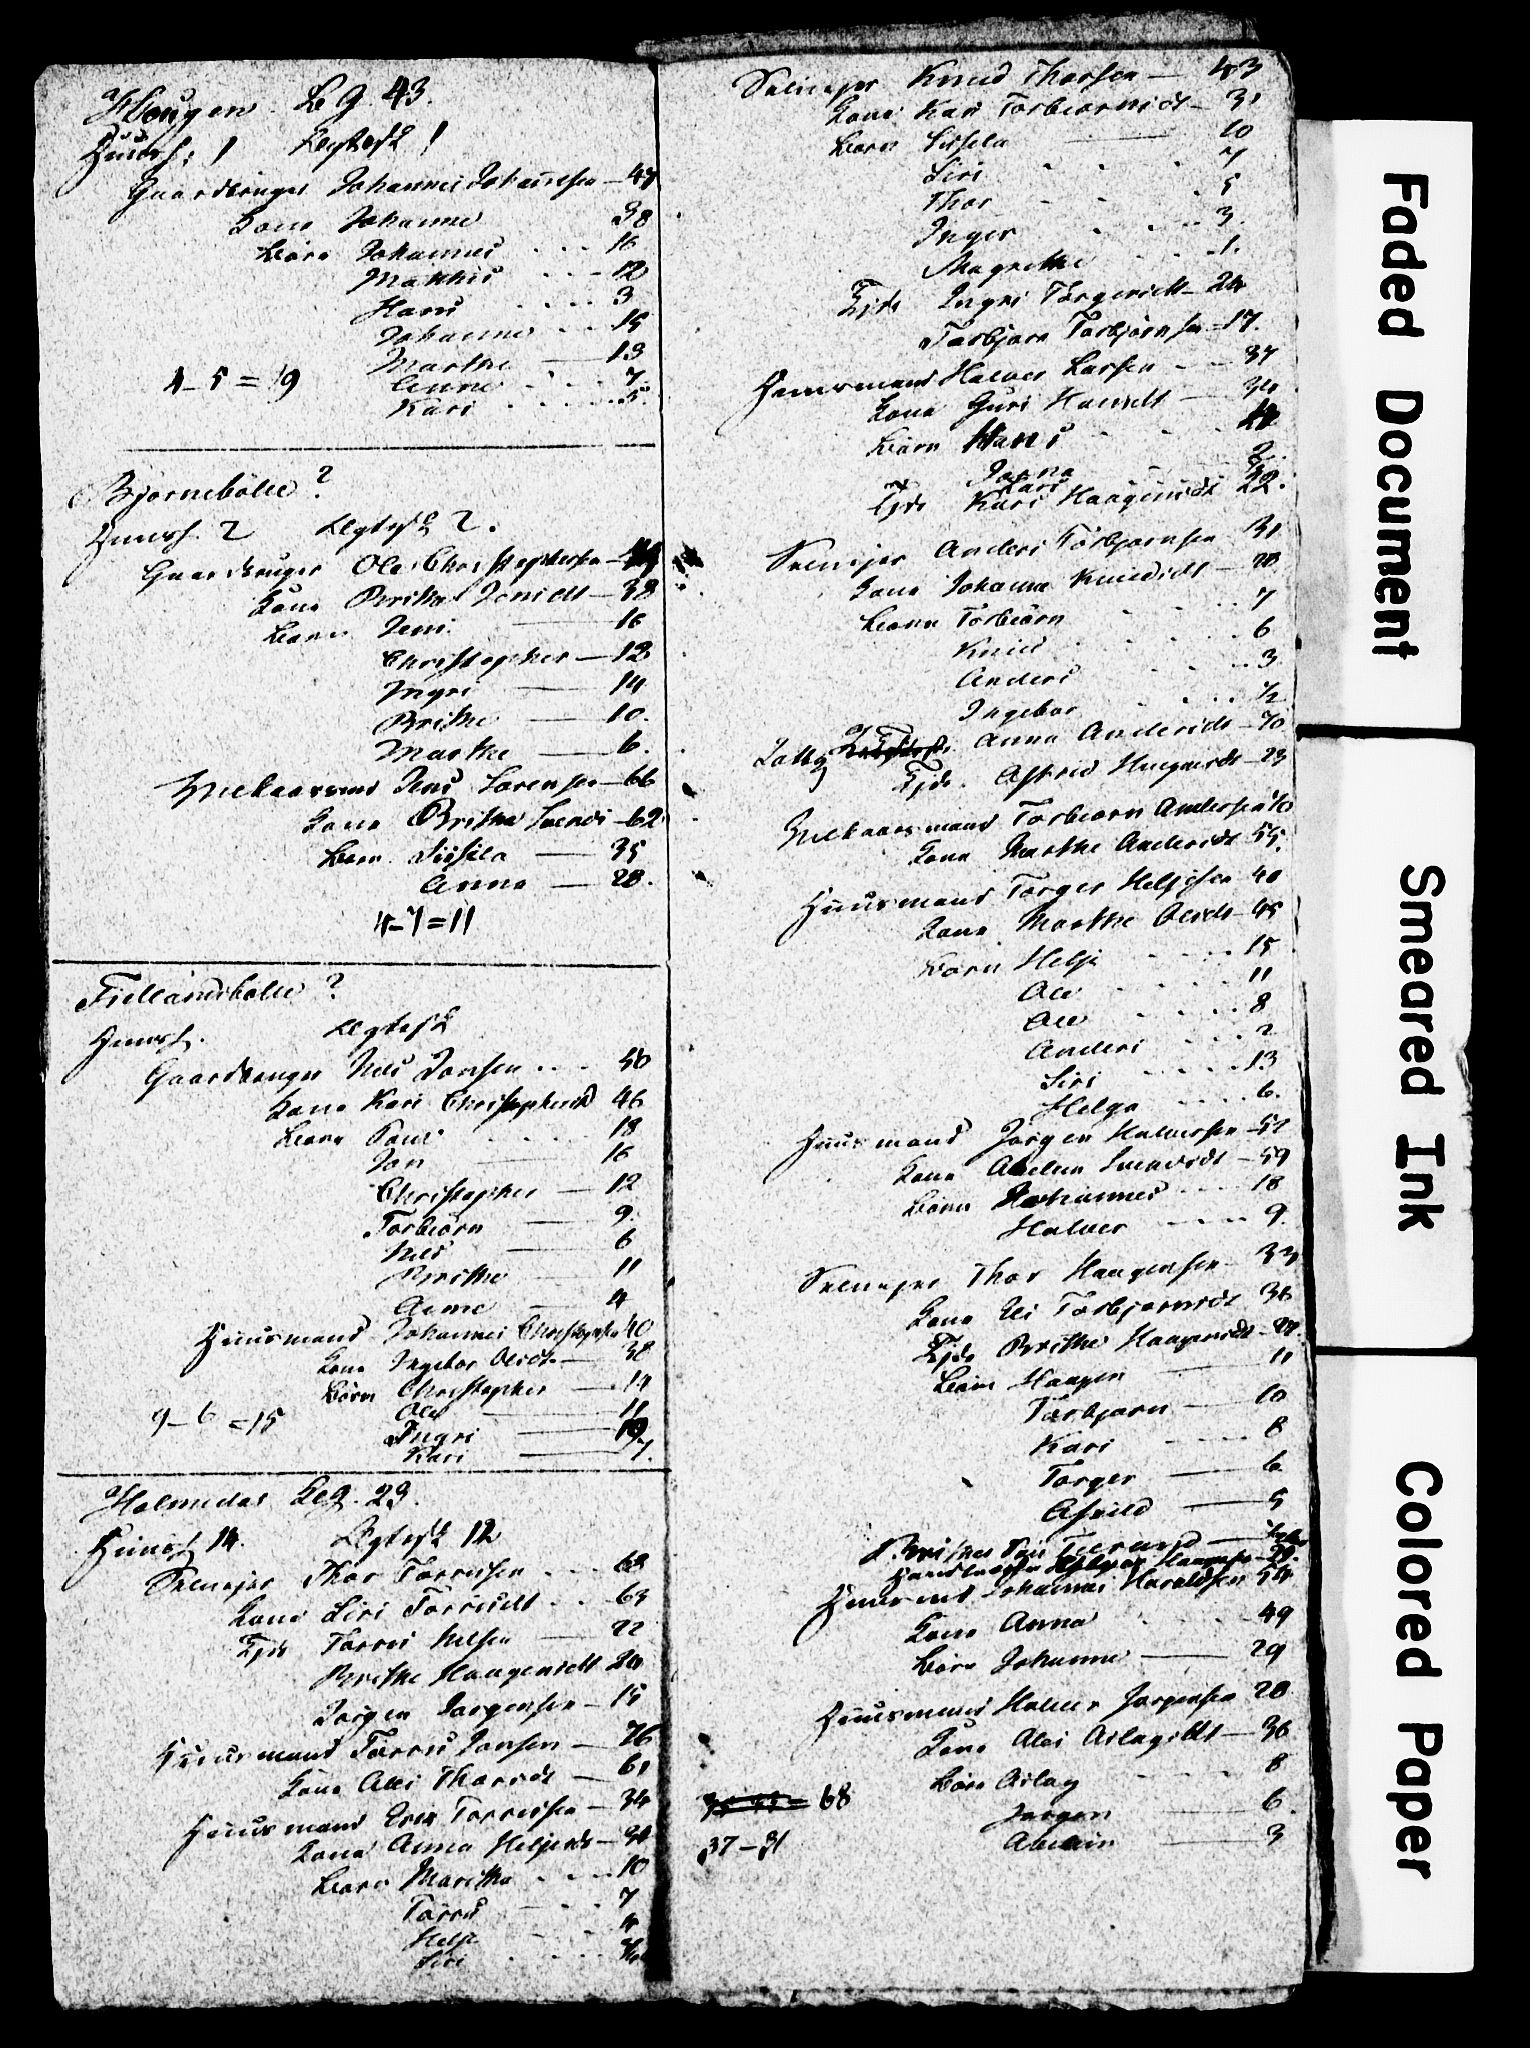 Hougen L. 9. 43.
Huusf: 1 Ægtesk 1
Gaardbruger Johannes Johannesen — 47
Kone Johanne 38
Børn Johannes 16
Matthis 12
Hans 3
Johanne 15
Marthe 13
4–5=9 Anne 7
Kari 5
Bjørnebølle ?
Huusf. 2 Ægtesk 2.
Gaardbruger Ole Christophersen
Kone Brithe Jensdt — 38
Børn Jens 16
Christopher — 12
Ingri — 14
Brithe — 10.
Marthe — 6.
Jens Sørensen — 66
Kone Brithe Svends — 62
Børn Sissela — 35
Anna — 28.
4–7=11
Fiellandsbølle ?
Huusf. Ægtesk
Gaardbruger Nils Jonsen 50
Kone Kari Christophersd 46
Børn Povel 18
Jon 16
Christopher — 12
Torbiørn — 9.
Nils — 6
Brithe — 11
Anne — 4
Huusmand Johannes Christophersen 40
Kone Ingebor Olsdt — 38
Børn Christopher — 14
Ole — 11
9–6=15 Ingri — 19
Kari — 7.
Holmedal Leg. 23.
Huusf 14. Ægtesk 12
Selvejer Thor Torresen 68
Kone Siri Torresdt 63
Tjds Torres Nilsen — 22
Brithe Haagensdt 24
Jørgen Jørgensen — 15
Huusmand Torres Jonsen — 76
Kone Ali Thorsdt — 61
Huusmand Erik Torresen — 34
Kone Anna Heljesdt — 34
Børn Maritha 10
Torres 7
Helje 4
Siri
Selvejer Knud Thorsen — 43
Kone Kari Torbiørnsdt — 31
Børn Sissela — 10
Siri 7
Thor 5
Inger 3.
Magrethe 1.
Tjds Ingri Torgersdt — 24
Torbjørn Torbjørnsen — 17.
Huusmand Halvor Larsen 37
Kone Guri Hansdt — 34
Børn Hans
Kari
Tjds Kari Haagensdt 22.
Selvejer Anders Torbjørnsen 31
Kone Johanna Knudsdt — 28
Børn Torbiørn 7
Knud 6
Anders 3
Ingebor ½
Anna Andersdt — 70
Tjds. Astrid — 23
Torbiørn Andersen
Kone Marthe Andersdt 55.
Huusmand Torger Heljesen 40
Kone Marthe Olsdt 45
Børn Helje 15
Ole 11
Ole 8
Anders 2
Siri 13
Helga 6.
Huusmand Jørgen Halvorsen — 52
Kone Abelun Svendsdt — 59
Børn Johannes 18
Halvor 9.
Selvejer Thor Haagensen 33
Kone Eli Torbjørnsdt 36
Tjds Brithe Haagensdt — 27.
Børn Haagen — 11
Torbjørn — 10
Kari 8
Torger — 6
Asrild — 5
Huusmand Johannes Haraldsen 54
Kone Anna 49
Børn Johanne — 29
Huusmand Halvor Jørgensen 28
Kone Alei Aslagsdt — 36
Børn Aslag 8
68 Jørgen — 6.
37–31 Abelun — 3
Faded Document
Smeared Ink
Colored Paper